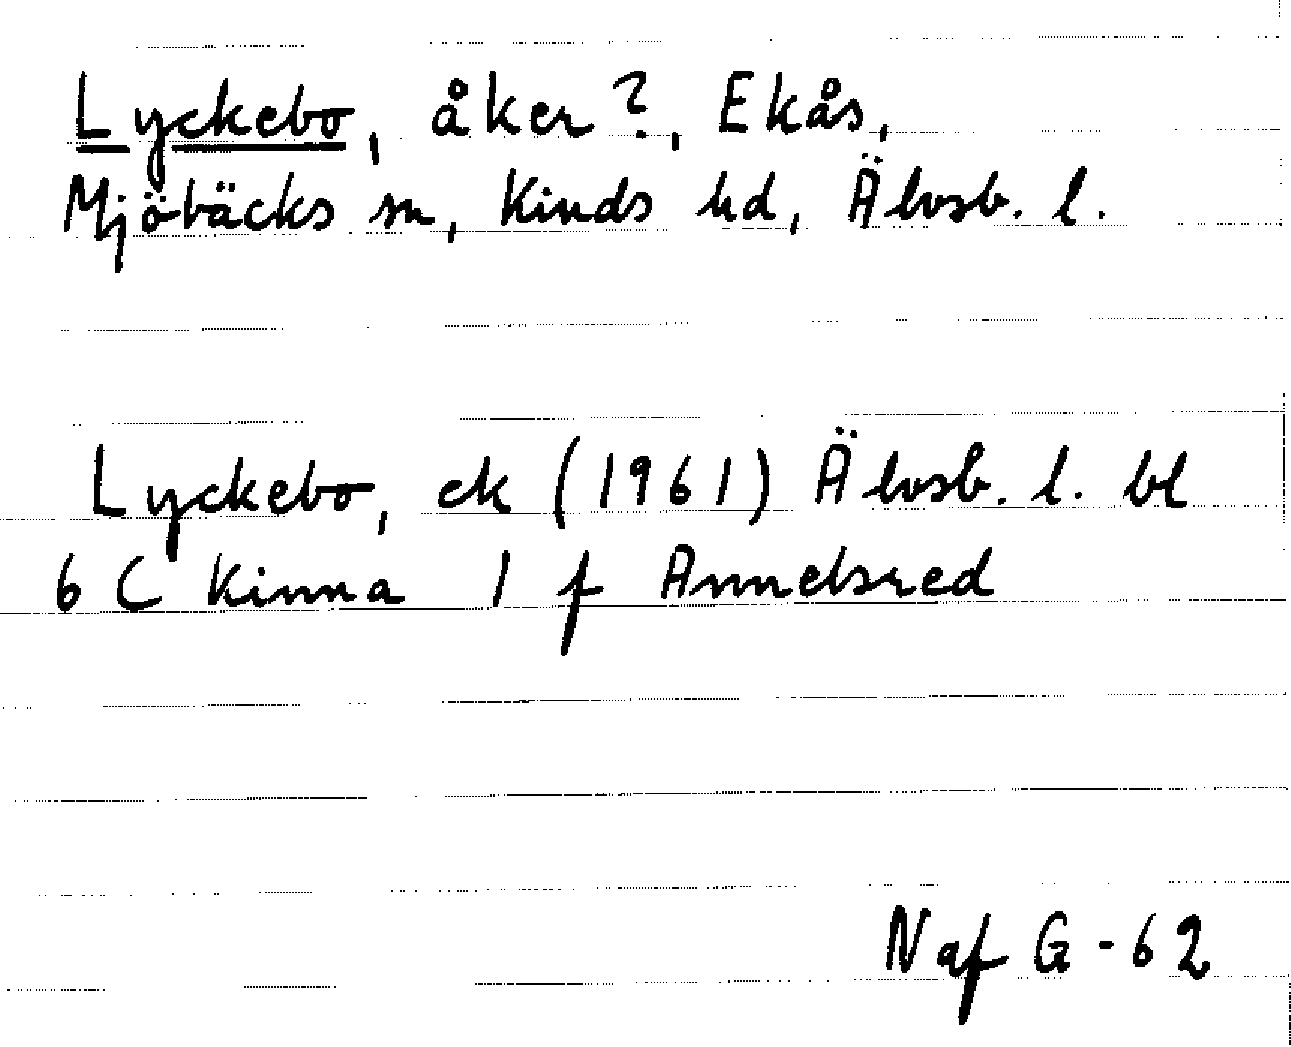 Lyckebo, åker?, Ekås,
Mjöbäcks sn, Kinds hd, Älvsb. l.
Lyckebo, ek (1961) Älvsb. l. bl
6 C Kinna 1 f Annelsred
Naf G-62